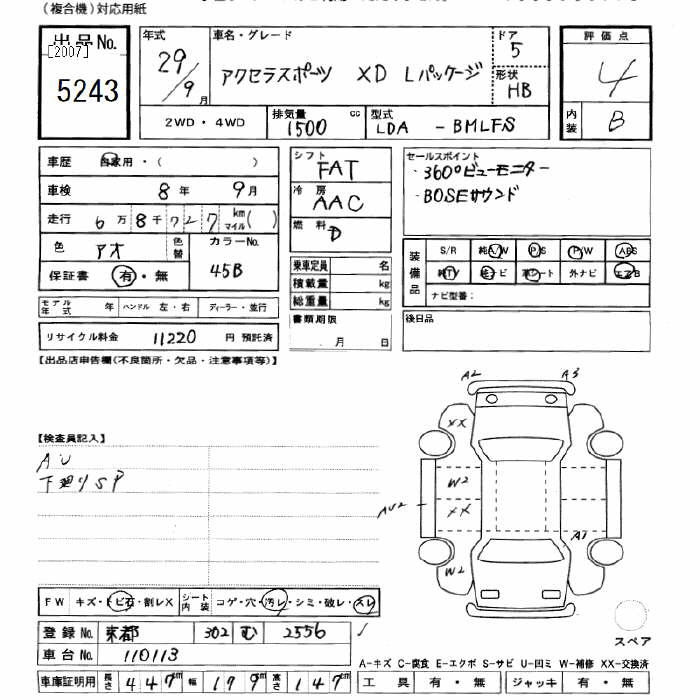 (複合機)対応用紙
出品No.
[2007]
5243
年式
29/9月
車名・グレード
アクセラスポーツ XD Lパッケージ
ドア
5
形状
HB
評価点
4
内装
B
2WD・4WD
排気量
1500 cc
型式
LDA - BMLFS
車歴 自家用・( )
車検 8年 9月
走行 6万8千727 km マイル( )
色 アオ
色替
カラーNo.
45B
保証書 有・無
モデル年式 年 ハンドル 左・右 ディーラー・並行
リサイクル料金 11220 円 預託済
シフト
FAT
冷房
AAC
燃料
D
乗車定員 名
積載量 kg
総重量 kg
書類期限
月 日
セールスポイント
・360°ビューモニター
・BOSEサウンド
装備品
S/R 純A/W P/S P/W ABS
純TV 純ナビ 革シート 外ナビ エアB
ナビ型番:
後日品
【出品店申告欄(不良箇所・欠品・注意事項等)】
【検査員記入】
AU
下廻りSP
A2 A3
XX
W2
XX
AU2
A1
W2
スペア
FW キズ・トビ石・割レX シート内装 コゲ・穴・汚レ・シミ・破レ・スレ
登録No. 302 む 2556
車台No. 110113
車庫証明用 長さ 447cm 幅 179cm 高さ 147cm
A-キズ C-腐食 E-エクボ S-サビ U-凹ミ W-補修 XX-交換済
工具 有・無 ジャッキ 有・無